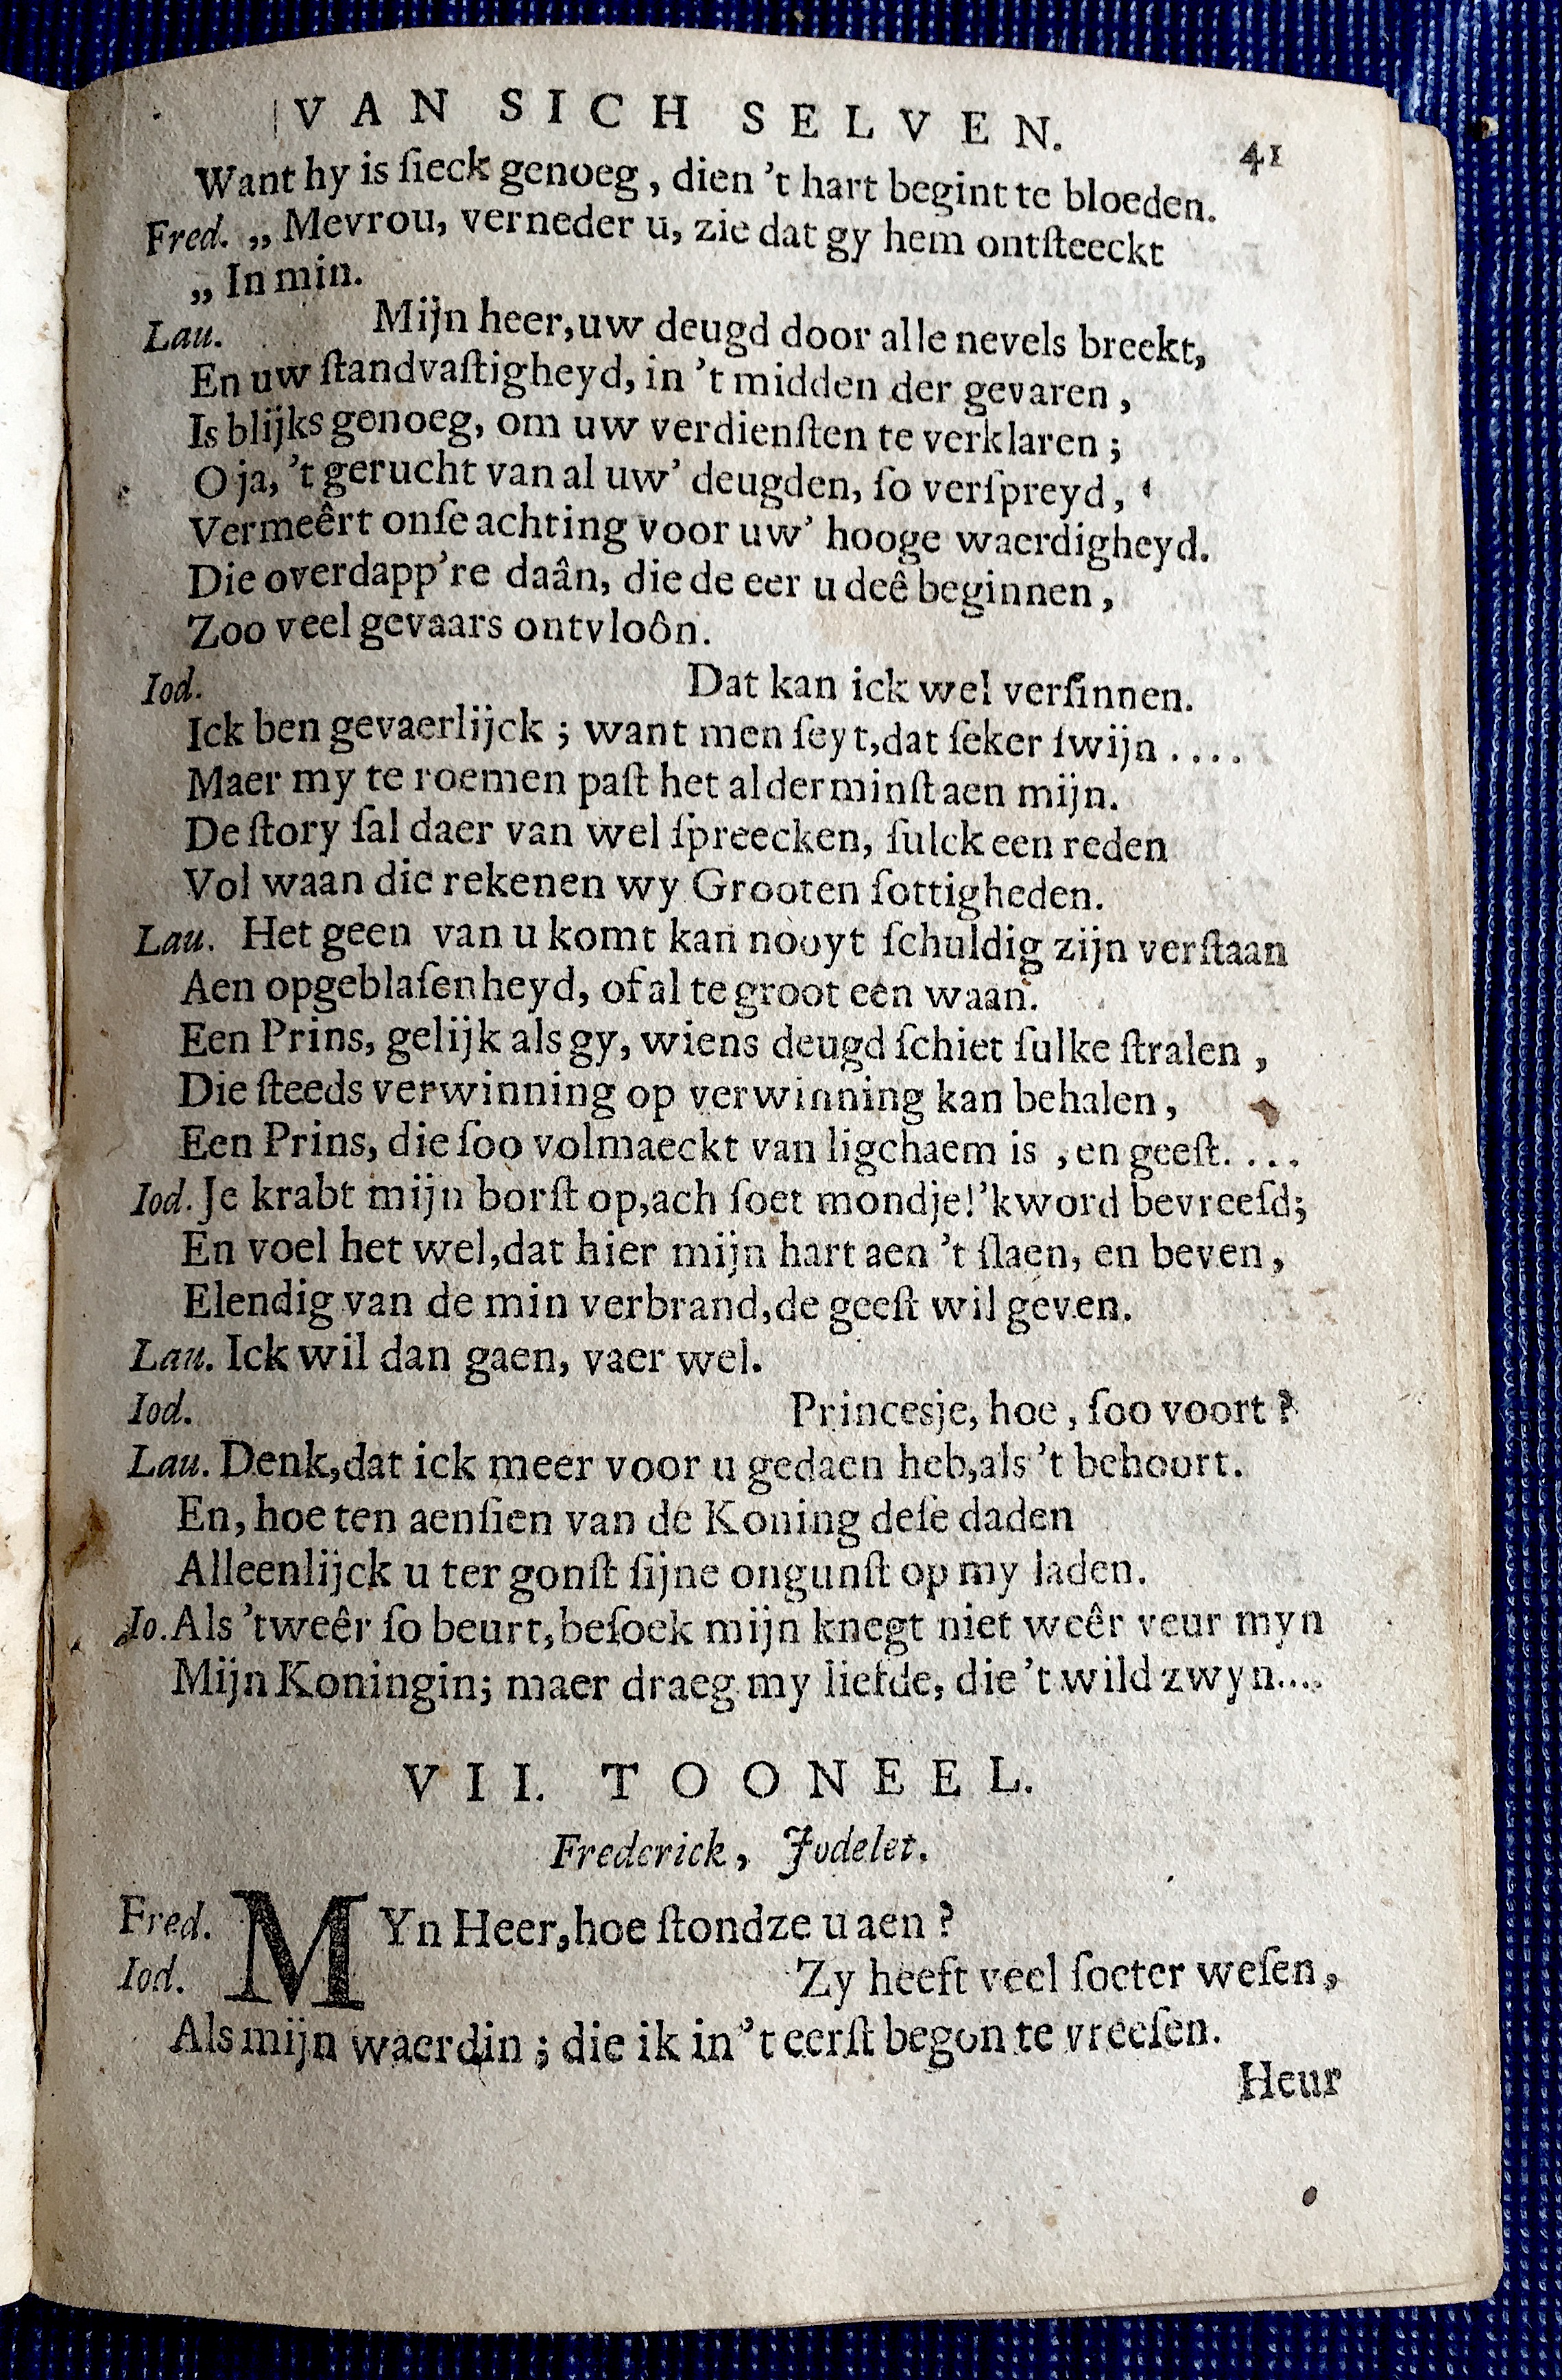 VAN SICH SELVEN. 41
Want hy is ſieck genoeg, dien 't hart begint te bloeden.
Fred. „ Mevrou, verneder u, zie dat gy hem ontſteeckt
„ In min.
Lau. Mijn heer, uw deugd door alle nevels breekt,
En uw ſtandvaſtigheyd, in 't midden der gevaren,
Is blijks genoeg, om uw verdienſten te verklaren;
O ja, 't gerucht van al uw' deugden, ſo verſpreyd,
Vermeêrt onſe achting voor uw' hooge waerdigheyd.
Die overdapp're daân, die de eer u deê beginnen,
Zoo veel gevaars ontvloôn.
Iod. Dat kan ick wel verſinnen.
Ick ben gevaerlijck; want men ſeyt, dat ſeker ſwijn ....
Maer my te roemen paſt het alderminſt aen mijn.
De ſtory ſal daer van wel ſpreecken, ſulck een reden
Vol waan die rekenen wy Grooten ſottigheden.
Lau. Het geen van u komt kan nooyt ſchuldig zijn verſtaan
Aen opgeblaſenheyd, of al te groot een waan.
Een Prins, gelijk als gy, wiens deugd ſchiet ſulke ſtralen,
Die ſteeds verwinning op verwinning kan behalen,
Een Prins, die ſoo volmaeckt van ligchaem is, en geeſt....
Iod. Je krabt mijn borſt op, ach ſoet mondje! 'k word bevreeſd;
En voel het wel, dat hier mijn hart aen 't ſlaen, en beven,
Elendig van de min verbrand, de geeſt wil geven.
Lau. Ick wil dan gaen, vaer wel.
Iod. Princesje, hoe, ſoo voort?
Lau. Denk, dat ick meer voor u gedaen heb, als 't behoort.
En, hoe ten aenſien van de Koning deſe daden
Alleenlijck u ter gonſt ſijne ongunſt op my laden.
Io. Als 't weêr ſo beurt, beſoek mijn knegt niet weêr veur myn
Mijn Koningin; maer draeg my liefde, die 't wild zwyn....
VII. TOONEEL.
Frederick, Jodelet.
Fred. MYn Heer, hoe ſtond ze u aen?
Iod. Zy heeft veel ſoeter weſen,
Als mijn waerdin; die ik in 't eerſt begon te vreeſen.
Heur